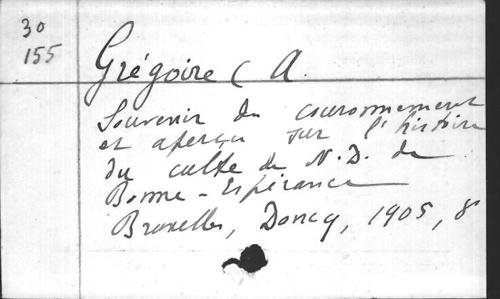 30
155
Grégoire (A.
Souvenir du couronnement
et aperçu sur l'histoire
du culte de N.D. de
Bonne-Espérance
Bruxelles, Doncq, 1905, 8°